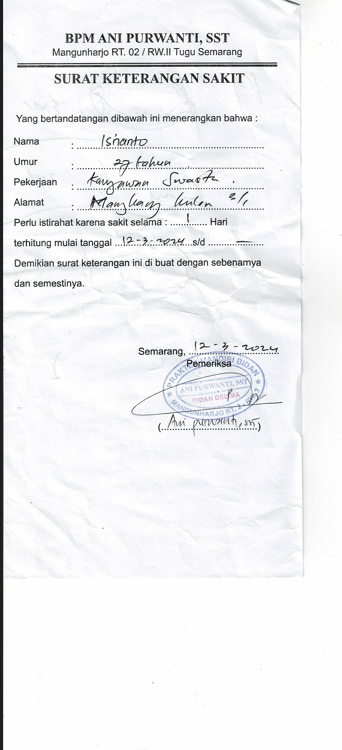 BPM ANI PURWANTI, SST
Mangunharjo RT. 02 / RW.II Tugu Semarang
SURAT KETERANGAN SAKIT
Yang bertandatangan dibawah ini menerangkan bahwa :
Nama : Isnanto
Umur : 27 tahun
Pekerjaan : Karyawan Swasta
Alamat : Mangkang Kulon 3/1
Perlu istirahat karena sakit selama : 1 Hari
terhitung mulai tanggal 12-3-2024 s/d —
Demikian surat keterangan ini di buat dengan sebenarnya
dan semestinya.
Semarang, 12-3-2024
Pemeriksa
PRAKTIK MANDIRI BIDAN
ANI PURWANTI, SST
BIDAN DELIMA
MANGUNHARJO RT. 2
(Ani purwanti, SST)